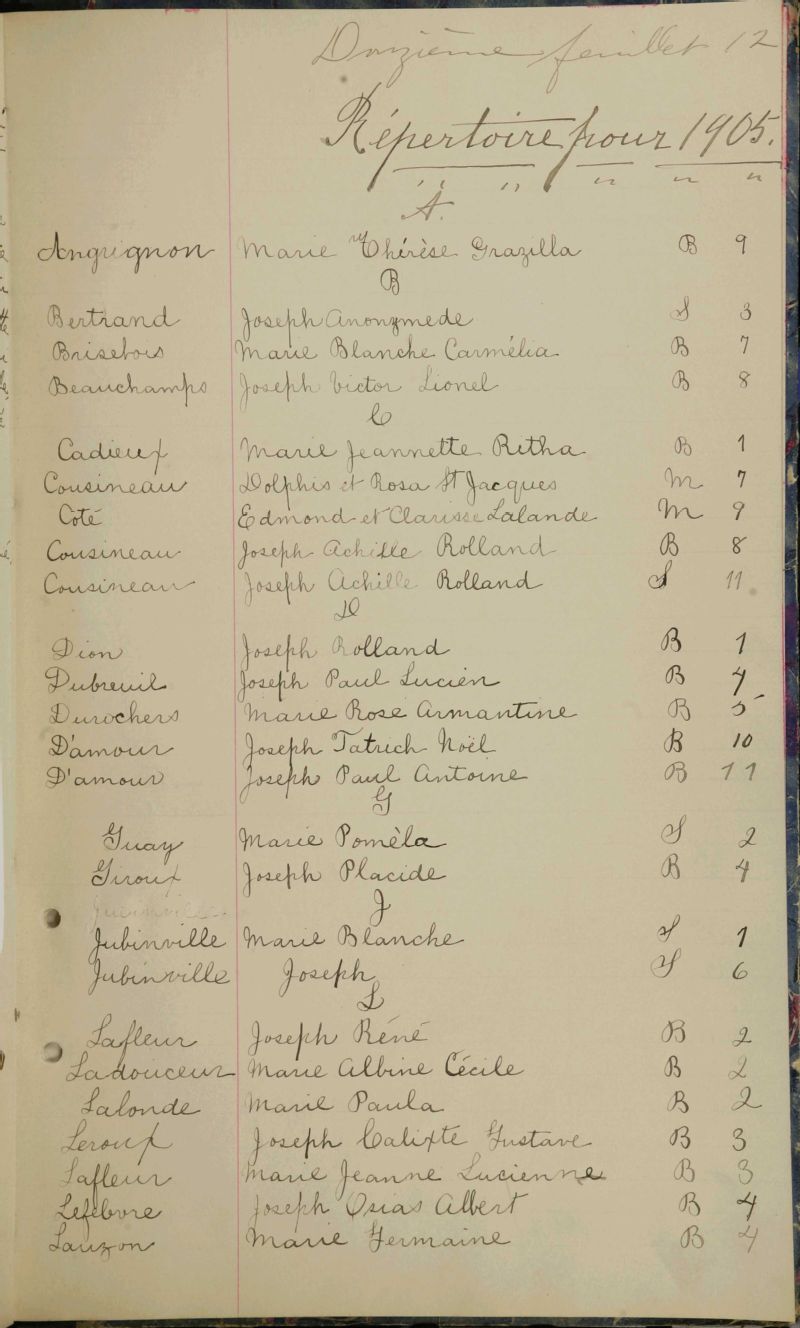 Douzième feuillet 12
Répertoire pour 1905.
" " " " "
A.
Angrignon Marie Thérèse Grazilla B 9
B
Bertrand Joseph Anonymede S 3
Brisebois Marie Blanche Carmélia B 7
Beauchamps Joseph Victor Lionel B 8
C
Cadieux Marie Jeannette Ritha B 1
Cousineau Dolphis et Rosa St Jacques M 7
Coté Edmond et Clarisse Lalande M 9
Cousineau Joseph Achille Rolland B 8
Cousineau Joseph Achille Rolland S 11
D
Dion Joseph Rolland B 1
Dubreuil Joseph Paul Lucien B 4
Durochers Marie Rose Armantine B 5
D'amour Joseph Patrich Noël B 10
D'amour Joseph Paul Antoine B 11
G
Guay Marie Poméla S 2
Giroux Joseph Placide B 4
J
Jubinville
Jubinville Marie Blanche S 1
Jubinville Joseph S 6
L
Lafleur Joseph Réné B 2
Ladouceur Marie Albine Cécile B 2
Lalonde Marie Paula B 2
Leroux Joseph Calixte Gustave B 3
Lafleur Marie Jeanne Lucienne B 3
Lefebvre Joseph Osias Albert B 4
Lauzon Marie Germaine B 4